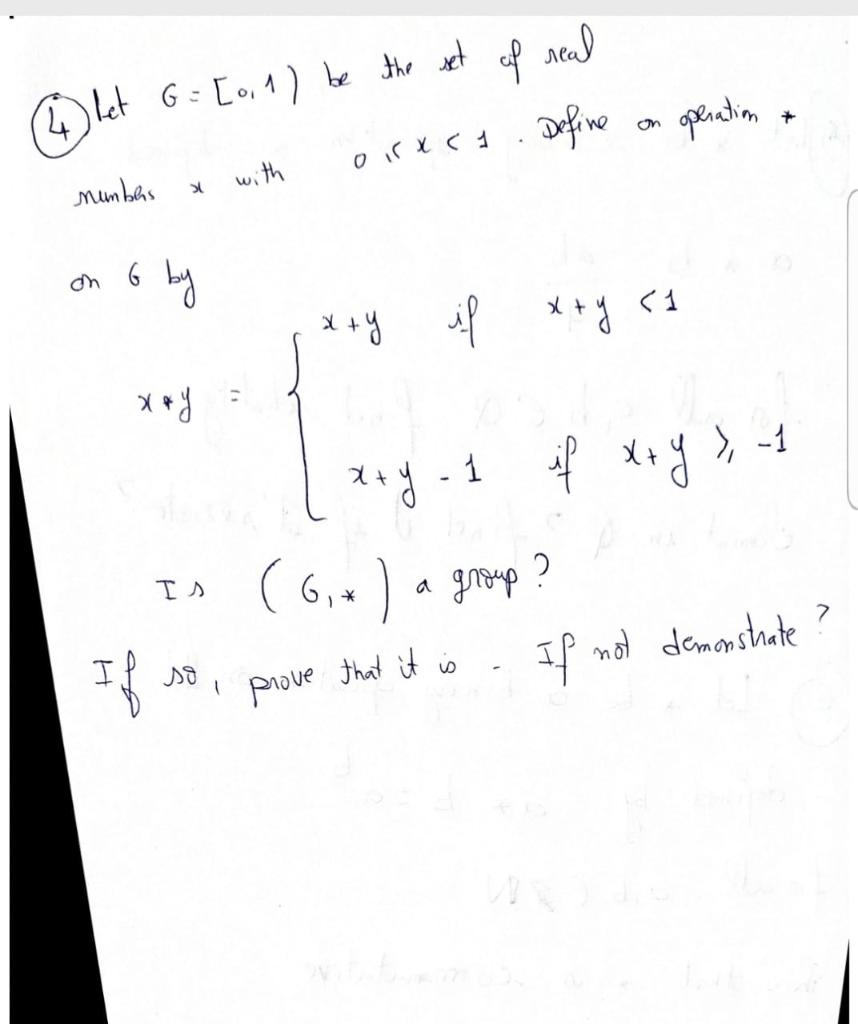 4 Let G = [0, 1) be the set of real
numbers x with 0 ≤ x < 1 Define on operation *
on G by
x + y if x + y < 1
x * y =
x + y - 1 if x + y ≥ -1
Is (G, *) a group?
If so, prove that it is - If not demonstrate?